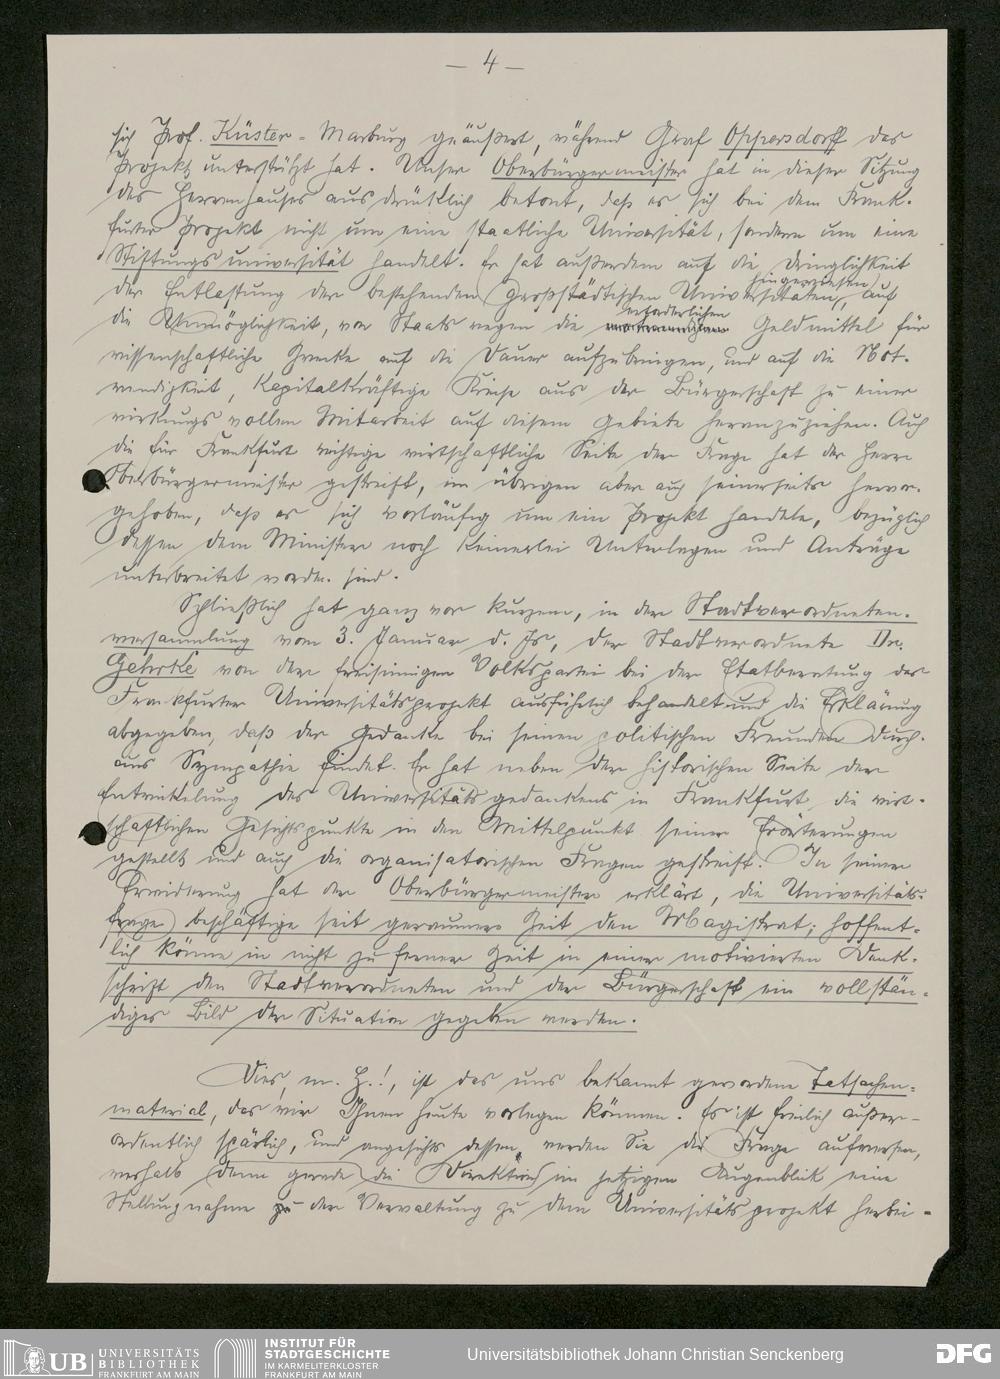 — 4 —
sich Prof. Küster-Marburg geäußert, während Graf Oppersdorff das
Projekt unterstützt hat. Unser Oberbürgermeister hat in dieser Sitzung
des Herrenhauses ausdrücklich betont, daß es sich bei dem Frank-
furter Projekt nicht um eine staatliche Universität, sondern um eine
Stiftungsuniversität handelt. Er hat außerdem auf die Dringlichkeit
hingewiesen,
der Entlastung der bestehenden großstädtischen Universitäten, auf
erforderlichen
die Unmöglichkeit, von Staats wegen die Geldmittel für
wissenschaftliche Zwecke auf die Dauer aufzubringen, und auf die Not-
wendigkeit, kapitalkräftige Kreise aus der Bürgerschaft zu einer
wirkungsvollen Mitarbeit auf diesem Gebiete heranzuziehen. Auch
die für Frankfurt wichtige wirtschaftliche Seite der Frage hat der Herr
Oberbürgermeister gestreift, im übrigen aber auch seinerseits hervor-
gehoben, daß es sich vorläufig um ein Projekt handele, bezüglich
dessen dem Minister noch keinerlei Unterlagen und Anträge
unterbreitet worden sind.
Schließlich hat ganz vor kurzem, in der Stadtverordneten-
versammlung vom 3. Januar d. Js., der Stadtverordnete Dr.
Gehrke von der freisinnigen Volkspartei bei der Etatberatung das
Frankfurter Universitätsprojekt ausführlich behandelt und die Erklärung
abgegeben, daß der Gedanke bei seinen politischen Freunden durch-
aus Sympathie findet. Er hat neben der historischen Seite der
Entwickelung des Universitätsgedankens in Frankfurt die wirt-
schaftlichen Gesichtspunkte in den Mittelpunkt seiner Erörterungen
gestellt und auch die organisatorischen Fragen gestreift. In seiner
Erwiderung hat der Oberbürgermeister erklärt, die Universitäts-
frage beschäftige seit geraumer Zeit den Magistrat; hoffent-
lich könne in nicht zu ferner Zeit in einer motivierten Denk-
schrift den Stadtverordneten und der Bürgerschaft ein vollstän-
diges Bild der Situation gegeben werden.
Dies, m. H.!, ist das uns bekannt gewordene Tatsachen-
material, das wir Ihnen heute vorlegen können. Es ist freilich außer-
ordentlich spärlich, und angesichts dessen werden Sie die Frage aufwerfen,
weshalb denn gerade die Direktion im jetzigen Augenblick eine
Stellungnahme der Verwaltung zu dem Universitätsprojekt herbei-
UB UNIVERSITÄTS
BIBLIOTHEK
FRANKFURT AM MAIN
INSTITUT FÜR
STADTGESCHICHTE
IM KARMELITERKLOSTER
FRANKFURT AM MAIN
Universitätsbibliothek Johann Christian Senckenberg
DFG